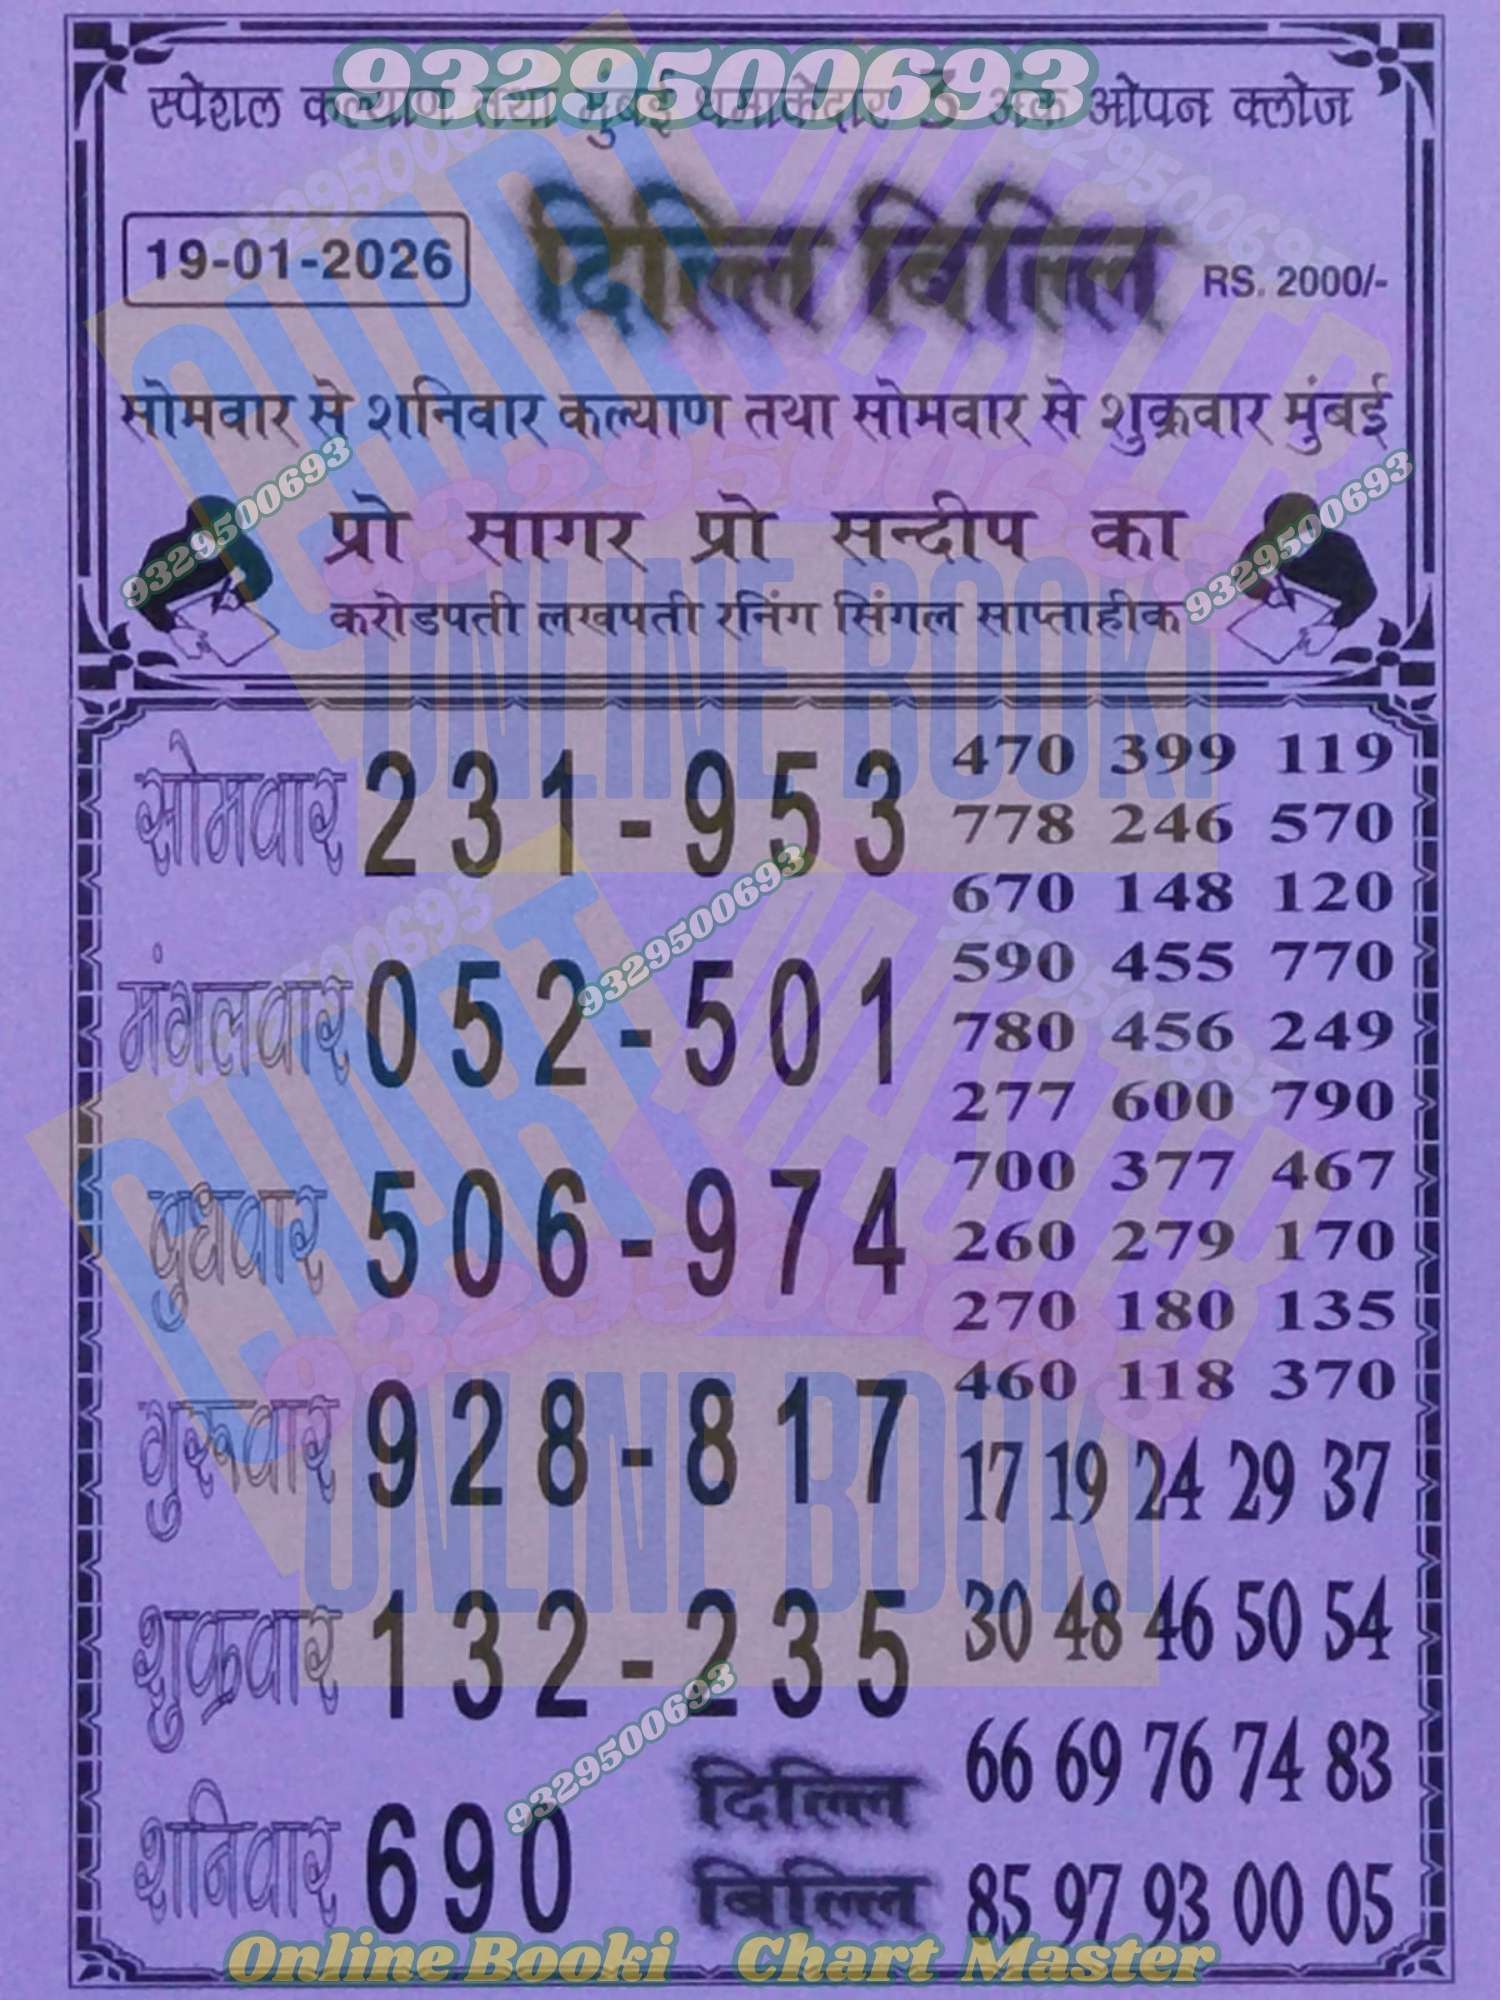 9329500693
स्पेशल कल्याण तथा मुंबई धमाकेदार 3 अंक ओपन क्लोज
19-01-2026 दिल्लि बिल्लि RS. 2000/-
सोमवार से शनिवार कल्याण तथा सोमवार से शुक्रवार मुंबई
9329500693 9329500693
प्रो सागर प्रो सन्दीप का
करोडपती लखपती रनिंग सिंगल साप्ताहीक
सोमवार 231-953
मंगलवार 052-501
बुधवार 506-974
गुरूवार 928-817
शुक्रवार 132-235
शनिवार 690
दिल्लि
बिल्लि
470 399 119
778 246 570
670 148 120
590 455 770
780 456 249
277 600 790
700 377 467
260 279 170
270 180 135
460 118 370
17 19 24 29 37
30 48 46 50 54
66 69 76 74 83
85 97 93 00 05
9329500693
9329500693
CHART MASTER
ONLINE BOOKI
CHART MASTER
ONLINE BOOKI
Online Booki Chart Master